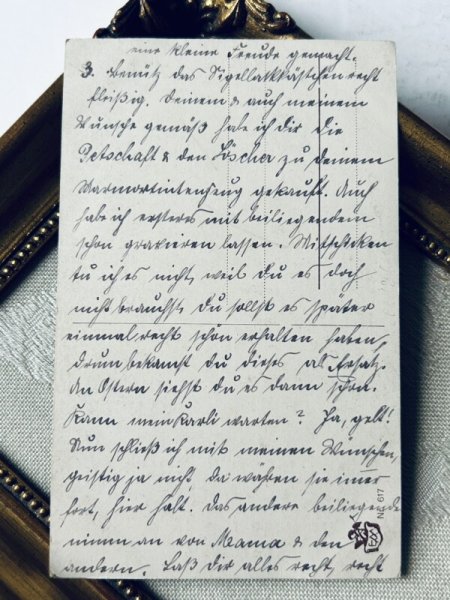 eine kleine Freude gemacht.
3. Benütz das Sigellackkästchen recht
fleißig. Deinem & auch meinem
Wunsche gemäß habe ich dir die
Petschaft & den Löscher zu deinem
Marmortintenzeug gekauft. Auch
habe ich ersteres mit beiliegendem
schon gravieren lassen. Mitschicken
tu ich es nicht, weil du es doch
nicht brauchst. Du sollst es später
einmal recht schön erhalten haben,
drum bekamst du dieses als Ersatz.
An Ostern siehst du es dann schon.
Kann mein Karli warten? Ja, gelt!
Nun schließ ich mit meinen Wünschen,
geistig ja nicht da währen sie imer
fort, hier halt. Das andere beiliegende
nimm an von Mama & den
andern. Laß dir alles recht, recht
No. 617